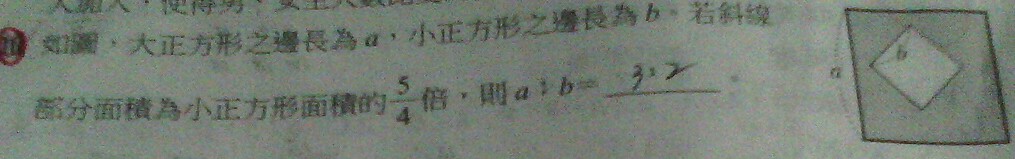 如圖，大正方形之邊長為a，小正方形之邊長為b。若斜線
部分面積為小正方形面積的5/4倍，則a：b=3:2。
a
b